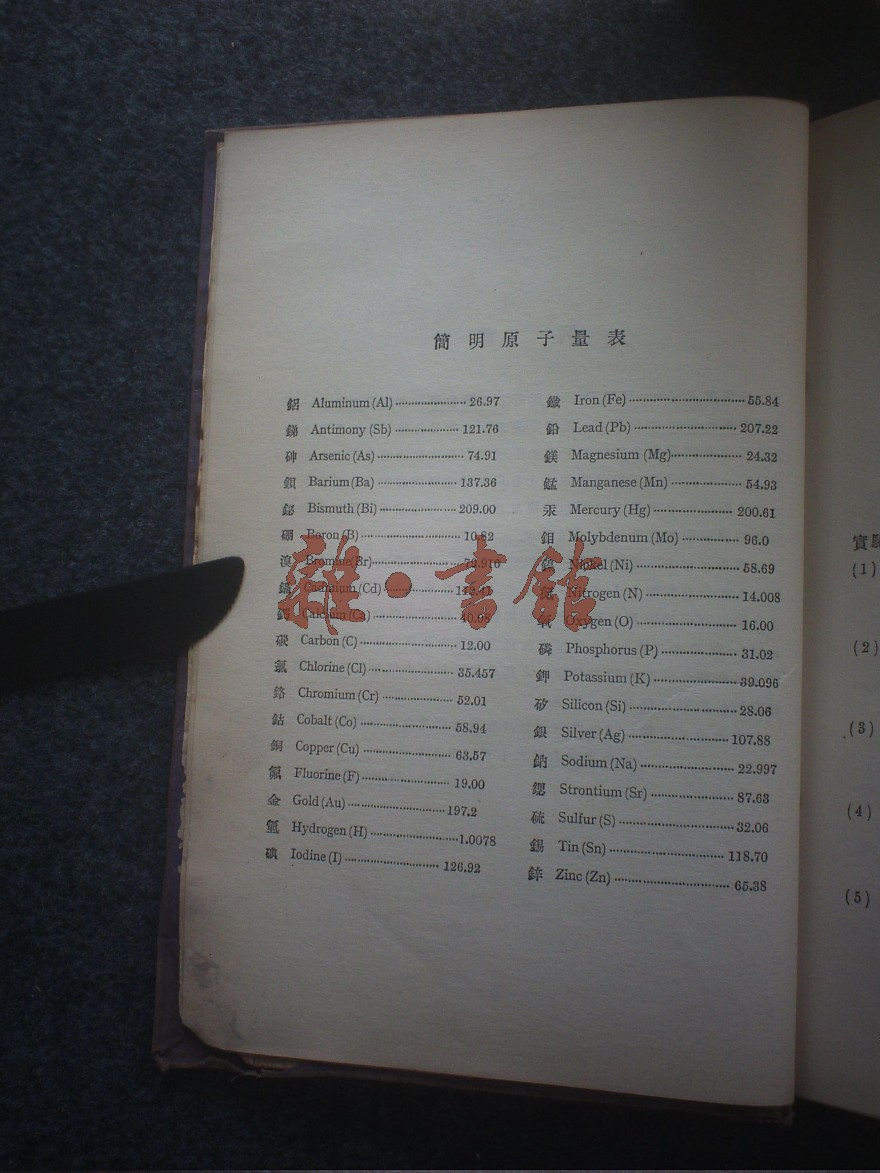 簡明原子量表
鋁 Aluminum (Al) 26.97
銻 Antimony (Sb) 121.76
砷 Arsenic (As) 74.91
鋇 Barium (Ba) 137.36
鉍 Bismuth (Bi) 209.00
硼 Boron (B) 10.82
溴 Bromine (Br) 79.916
鎘 Cadmium (Cd) 112.41
鈣 Calcium (Ca)
碳 Carbon (C) 12.00
氯 Chlorine (Cl) 35.457
鉻 Chromium (Cr) 52.01
鈷 Cobalt (Co) 58.94
銅 Copper (Cu) 63.57
氟 Fluorine (F) 19.00
金 Gold (Au) 197.2
氫 Hydrogen (H) 1.0078
碘 Iodine (I) 126.92
鐵 Iron (Fe) 55.84
鉛 Lead (Pb) 207.22
鎂 Magnesium (Mg) 24.32
錳 Manganese (Mn) 54.93
汞 Mercury (Hg) 200.61
鉬 Molybdenum (Mo) 96.0
Nickel (Ni) 58.69
Nitrogen (N) 14.008
Oxygen (O) 16.00
磷 Phosphorus (P) 31.02
鉀 Potassium (K) 39.096
矽 Silicon (Si) 28.06
銀 Silver (Ag) 107.88
鈉 Sodium (Na) 22.997
鍶 Strontium (Sr) 87.63
硫 Sulfur (S) 32.06
錫 Tin (Sn) 118.70
鋅 Zinc (Zn) 65.38
雜·書館
實
(1)
(2)
(3)
(4)
(5)